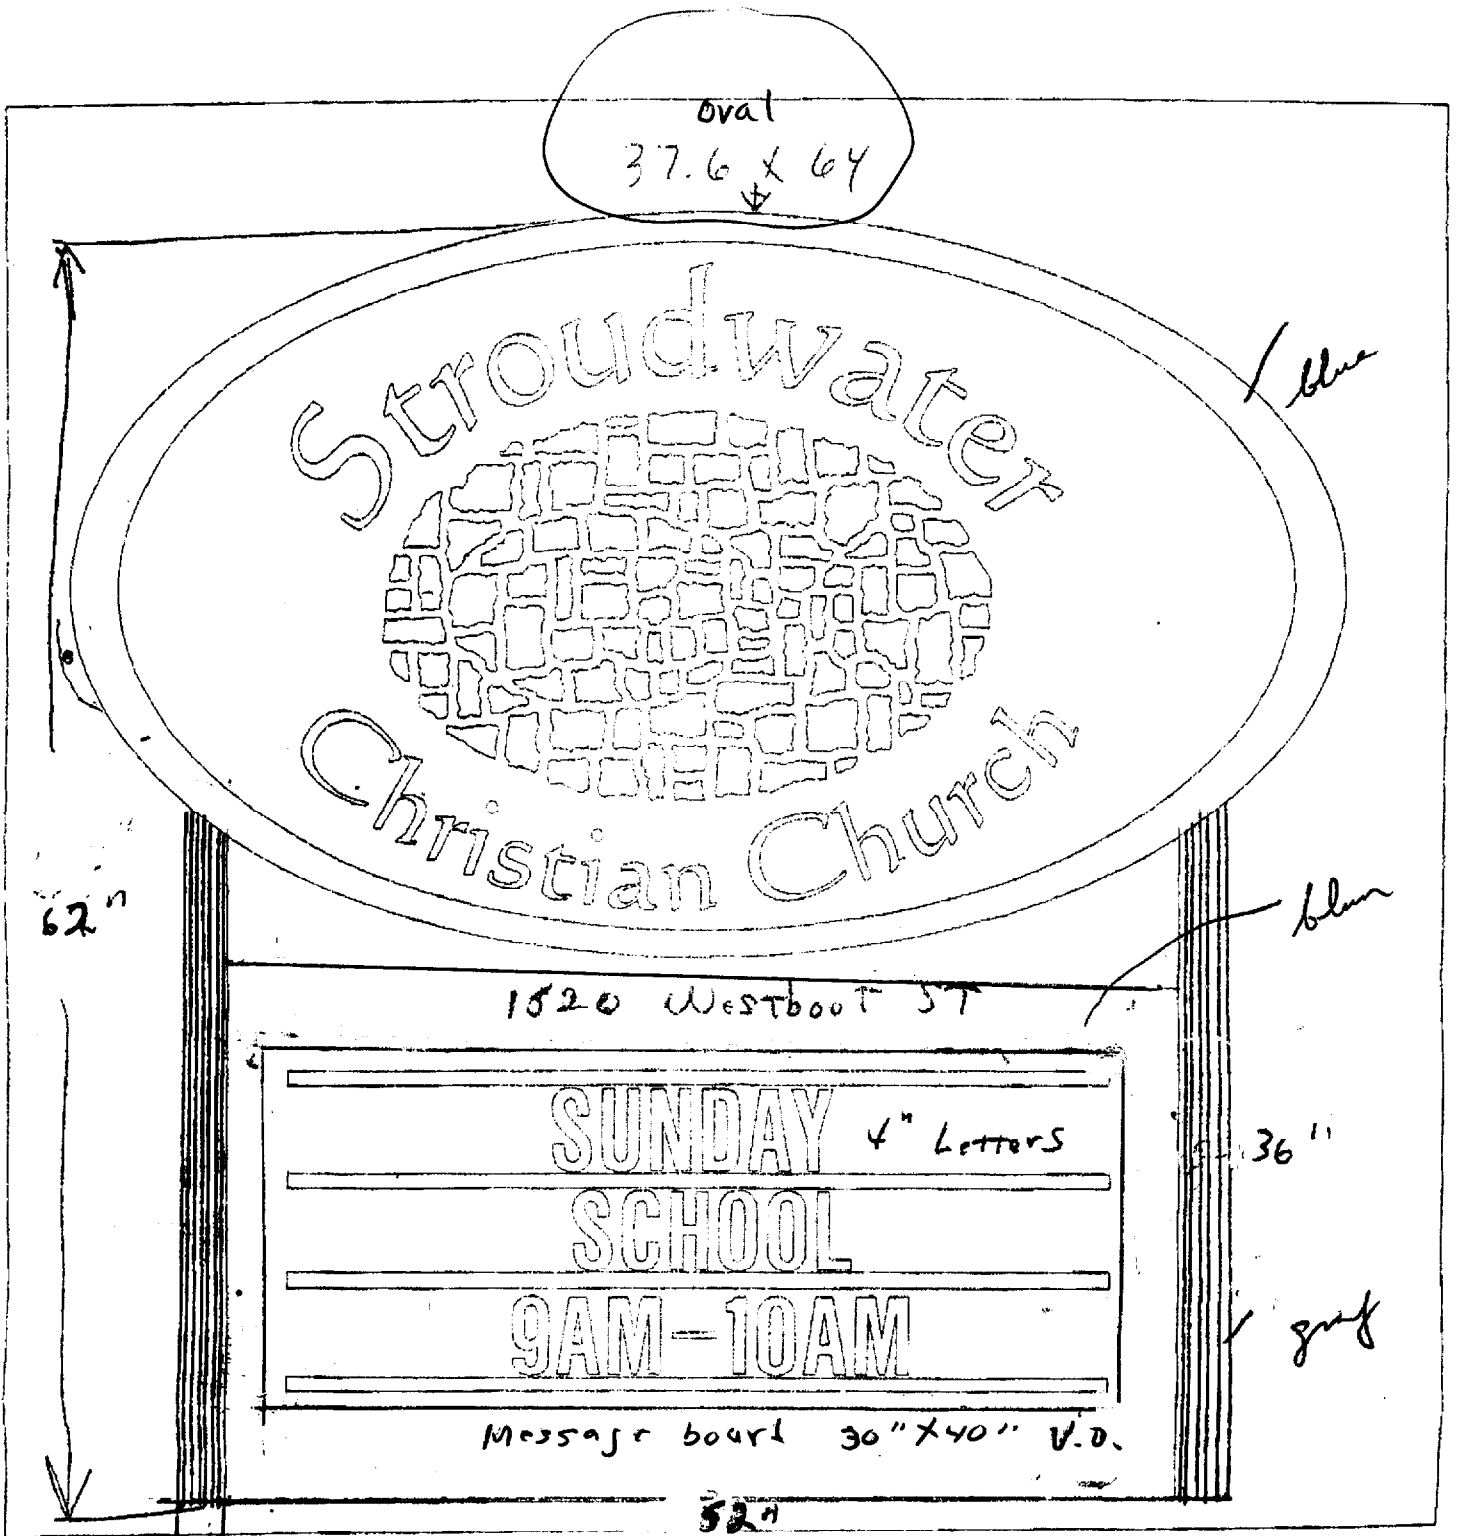 oval
37.6 X 64
blue
Stroudwater
Christian Church
62"
blue
1520 Westboot ST
SUNDAY
4" Letters
36"
SCHOOL
9AM–10AM
gray
Message board 30"X40" V.O.
52"